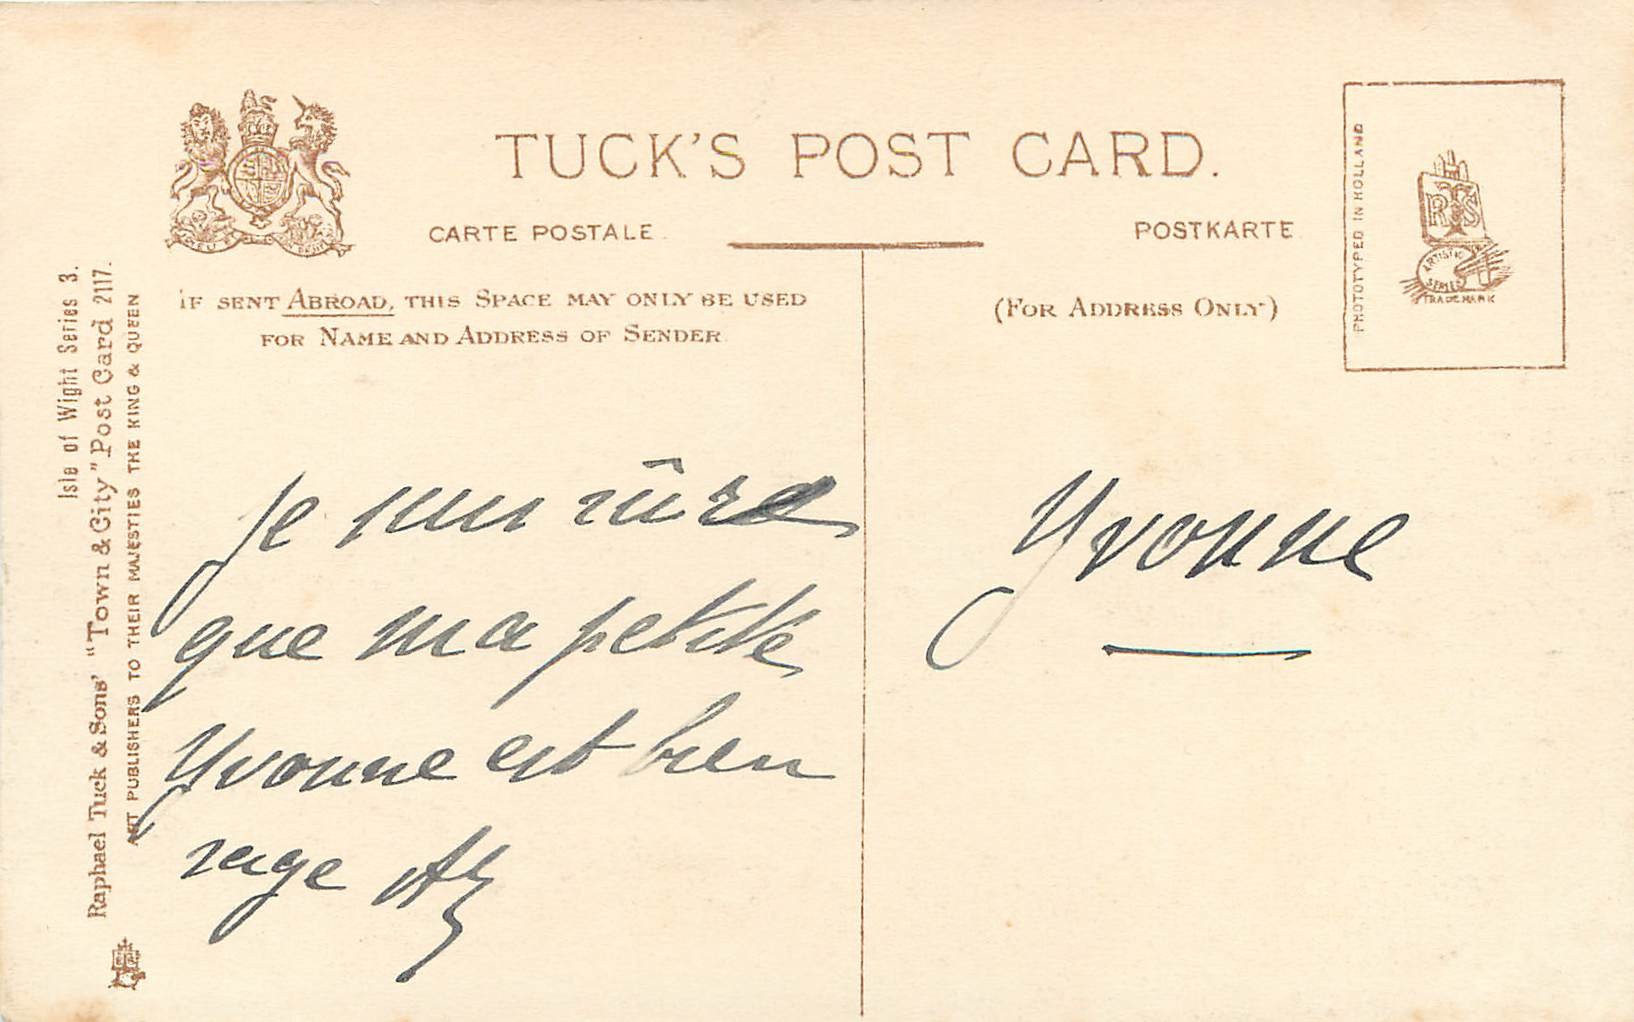 TUCK'S POST CARD.
CARTE POSTALE.
POSTKARTE
IF SENT ABROAD, THIS SPACE MAY ONLY BE USED
FOR NAME AND ADDRESS OF SENDER
(FOR ADDRESS ONLY)
PHOTOTYPED IN HOLLAND
RTS
ARTISTIC
SERIES
TRADE MARK
Isle of Wight Series 3.
Raphael Tuck & Sons' "Town & City" Post Card 2117.
ART PUBLISHERS TO THEIR MAJESTIES THE KING & QUEEN
je suis sûre
que ma petite
Yvonne est bien
sage
Yvonne